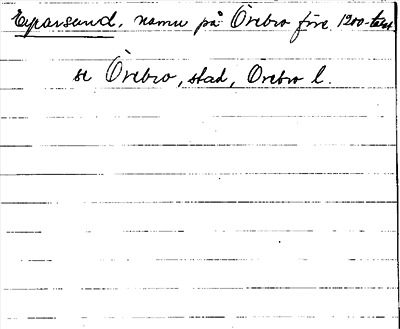 Eyrarsund, namn på Örebro före 1200-tal
se Örebro, stad, Örebro l.